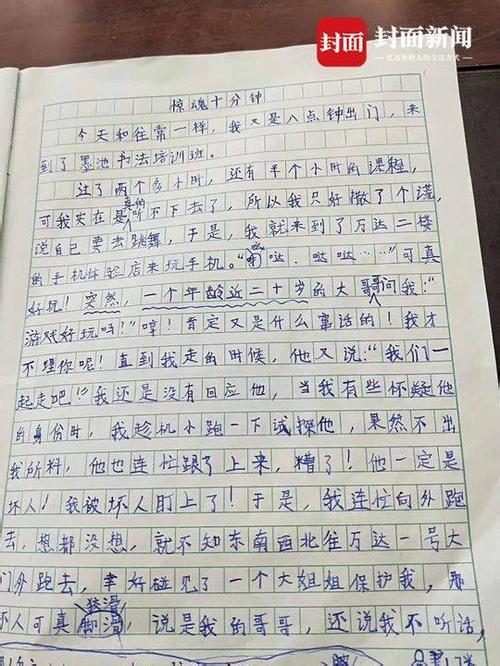 封面 封面新闻
亿万年轻人的生活方式
惊魂十分钟
今天和往常一样，我又是八点钟出门，来
到了墨池书法培训班。
过了两个多小时，还有半个小时的课程，
真的
可我实在是听不下去了，所以我只好撒了个谎，
说自己要去跳舞，于是，我就来到了万达二楼
的手机体验店来玩手机。“哒、哒哒……”可真
好玩！突然，一个年龄近二十岁的大哥哥问我：“
游戏好玩吗？”哼！肯定又是什么事话的！我才
不理你呢！直到我走的时候，他又说：“我们一
起走吧！”我还是没有回应他，当我有些怀疑他
的身份时，我趁机小跑一下试探他，果然不出
我所料，他也连忙跟了上来，糟了！他一定是
坏人！我被坏人盯上了！于是，我连忙向外跑
去，想都没想，就不知东南西北往万达一号大
门外跑去，幸好碰见了一个大姐姐保护我，那
狡猾
坏人可真脚滑，说是我的哥哥，还说我不听话，